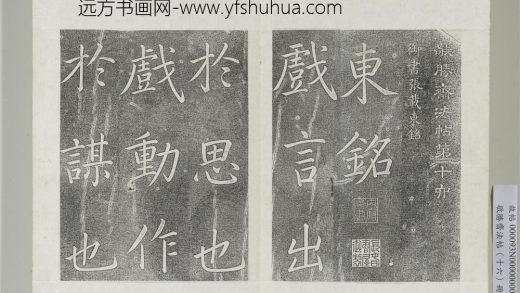 远方书画网-www.yfshuhua.com
敬勝齋法帖第十六
御書張載東銘
東銘
戲言出
於思也
戲動作
於謀也
故帖 000093N00000000
敬勝齋法帖（十六）冊